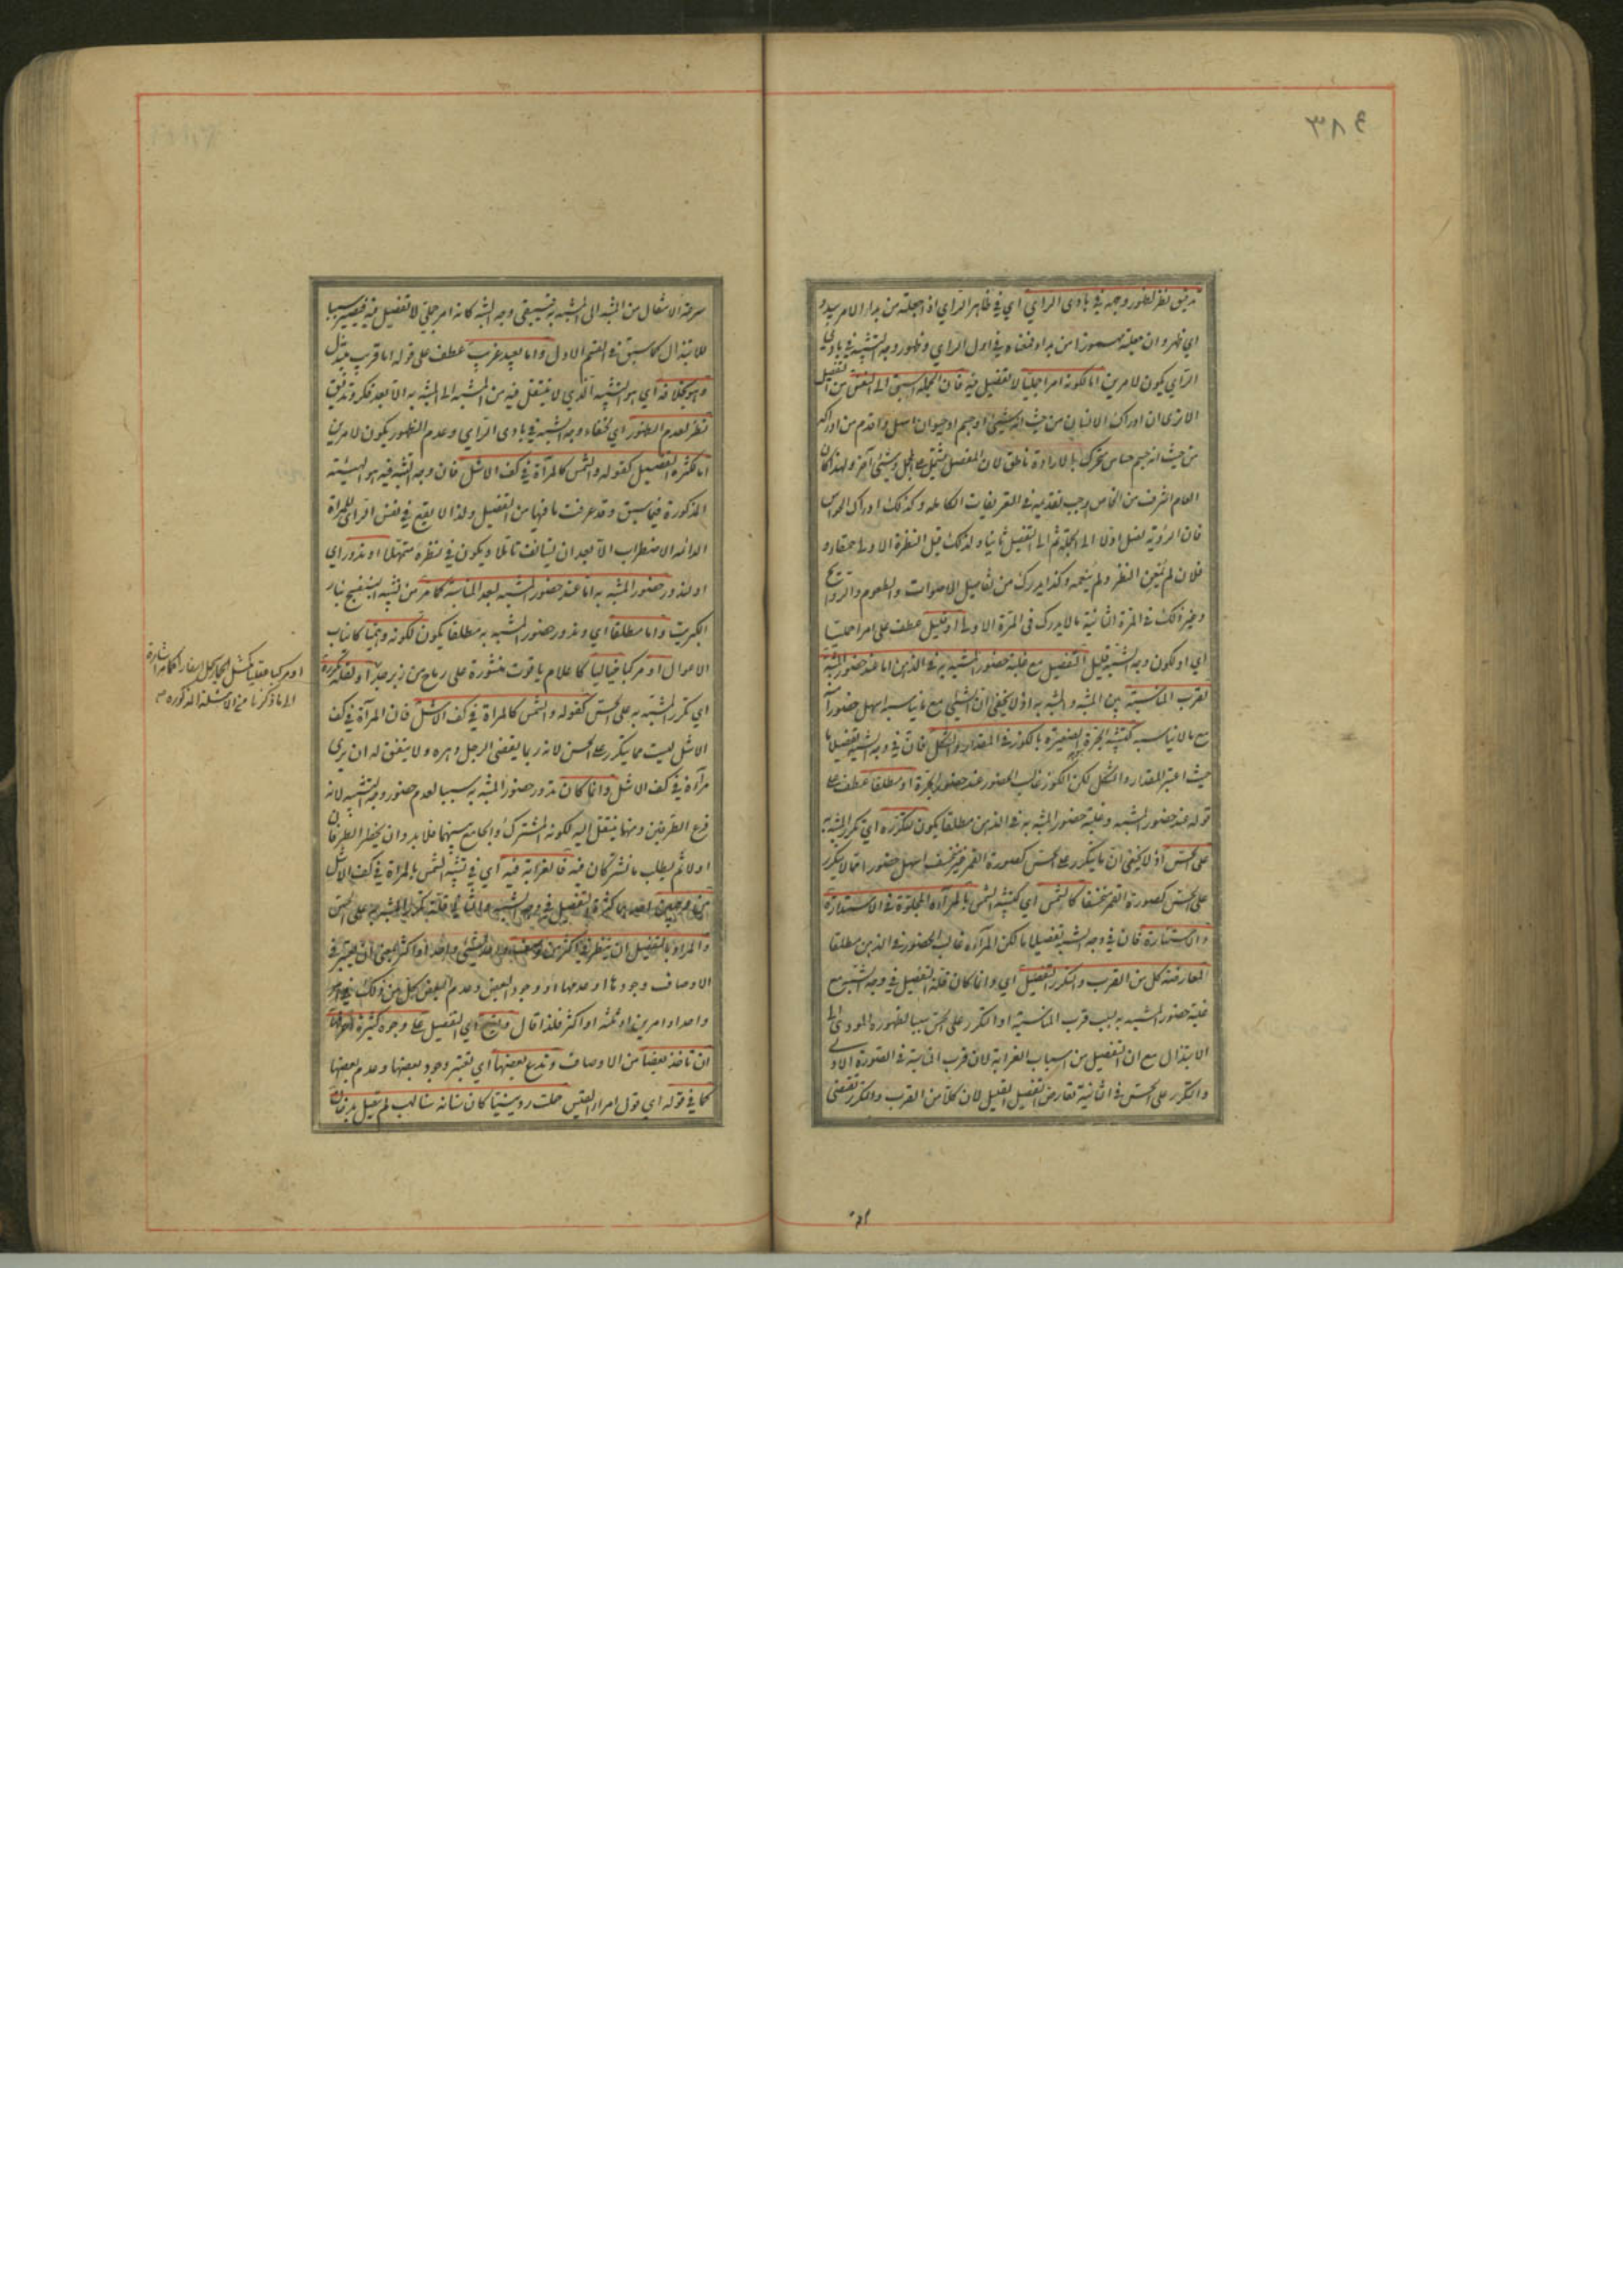 ٣٨٤
تدقيق نظر لظهور وجهه في بادى الراي اي في ظاهر الراي اذا جعلته من بدا الامر يبدو
اي ظهر وان جعلته مهموزا من بدا فمعناه في اول الراي وظهور وجه التشبيه في بادى
الراي يكون لامرين اما لكونه امرا جليا لا تفصيل فيه فان الجملة اسبق الى النفس من التفصيل
الا ترى ان ادراك الانسان من حيث انه شيء او جسم او حيوان اسهل واقدم من ادراكه
من حيث انه جسم حساس متحرك بالارادة ناطق لان المفصل يشتمل على المجمل وشيء آخر ولهذا كان
العام اعرف من الخاص ووجب تقديمه في التعريفات الكاملة وكذلك ادراك الحواس
فان الرؤية تصل اولا الى الجملة ثم الى التفصيل ثانيا ولذلك قيل النظرة الاولى حمقاء و
فلان لم يمعن النظر ولم ينعمه وكذا يدرك من تفاصيل الاصوات والطعوم والروائح
وغير ذلك في المرة الثانية ما لا يدرك في المرة الاولى او قليل عطف على امرا جليا
اي او لكون وجه الشبه قليل التفصيل مع غلبة حضور المشبه به في الذهن اما عند حضور المشبه
لقرب المناسبة بين المشبه والمشبه به اذ لا يخفى ان الشيء مع ما يناسبه اسهل حضورا
مع ما لا يناسبه كتشبيه الجرة الصغيرة بالكوز في المقدار والشكل فان في وجه الشبه تفصيلا ما
حيث اعتبر المقدار والشكل لكن الكوز غالب الحضور عند حضور الجرة او مطلقا عطف على
قوله عند حضور المشبه وغلبة حضور المشبه به في الذهن مطلقا يكون لتكرره اي تكرر المشبه به
على الحس اذ لا يخفى ان ما يتكرر على الحس كصورة القمر غير منخسف اسهل حضورا مما لا يتكرر
على الحس كصورة القمر منخسفا كالشمس اي كتشبيه الشمس بالمرآة المجلوة في الاستدارة
والاستنارة فان في وجه الشبه تفصيلا ما لكن المرآة غالب الحضور في الذهن مطلقا
لمعارضة كل من القرب والتكرر التفصيل اي وانما كان قلة التفصيل في وجه الشبه مع
غلبة حضور المشبه به بسبب قرب المناسبة او التكرر على الحس سببا لظهوره المودي الى
الابتذال مع ان التفصيل من اسباب الغرابة لان قرب المناسبة في الصورة الاولى
والتكرر على الحس في الثانية تعارض التفصيل القليل لان كلا من القرب والتكرر يقتضي
سرعة الانتقال من المشبه الى المشبه به فيبقى وجه الشبه كانه امر جلي لا تفصيل فيه فيصير سببا
للابتذال كما سبق في القسم الاول واما بعيد غريب عطف على قوله اما قريب مبتذل
وهو بخلافه اي هو التشبيه الذي لا ينتقل فيه من المشبه الى المشبه به الا بعد فكر وتدقيق
نظر لعدم الظهور اي لخفاء وجه الشبه في بادى الراي وعدم الظهور يكون لامرين
اما لكثرة التفصيل كقوله والشمس كالمرآة في كف الاشل فان وجه التشبيه فيه هو الهيئة
المذكورة فيما سبق وقد عرفت ما فيها من التفصيل ولذا لا يقع في نفس الرائي للمرآة
الدائمة الاضطراب الا بعد ان يستانف تاملا ويكون في نظره متمهلا او ندور اي
او لندور حضور المشبه به اما عند حضور المشبه لبعد المناسبة كما مر من تشبيه البنفسج بنار
الكبريت واما مطلقا اي وندور حضور المشبه به مطلقا يكون لكونه وهميا كانياب
الاغوال او مركبا خياليا كاعلام ياقوت منشورة على رماح من زبرجد او لقلة تكرره
اي تكرر المشبه به على الحس كقوله والشمس كالمرآة في كف الاشل فان المرآة في كف
الاشل ليست مما يتكرر على الحس لانه ربما يقضى الرجل دهره ولا يتفق له ان يرى
مرآة في كف الاشل وانما كان ندور حضور المشبه به سببا لعدم حضور وجه التشبيه لانه
فرع الطرفين ومنهما ينتقل اليه لكونه المشترك والجامع بينهما فلا بد وان يخطر الطرفان
اولا ثم يطلب ما يشتركان فيه فالغرابة فيه اي في تشبيه الشمس بالمرآة في كف الاشل
من وجهين احدهما كثرة التفصيل في وجه الشبه والثاني قلة تكرر المشبه به على الحس
والمراد بالتفصيل ان ينظر في اكثر من وصف واحد لشيء واحد او اكثر بمعنى ان يعتبر في
الاوصاف وجودها او عدمها او وجود البعض وعدم البعض كل من ذلك في امر
واحد او امرين او ثلثة او اكثر فلذا قال ويقع اي التفصيل على وجوه كثيرة اعرفها
ان تاخذ بعضا من الاوصاف وتدع بعضها اي تعتبر وجود بعضها وعدم بعضها
كما في قوله اي قول امرء القيس حملت ردينيا كان سنانه سنا لهب لم يتصل بدخان
او مركبا عقليا كمثل الحمار يحمل اسفارا كما مر اشارة
الى ما ذكرنا من الامثلة المذكورة